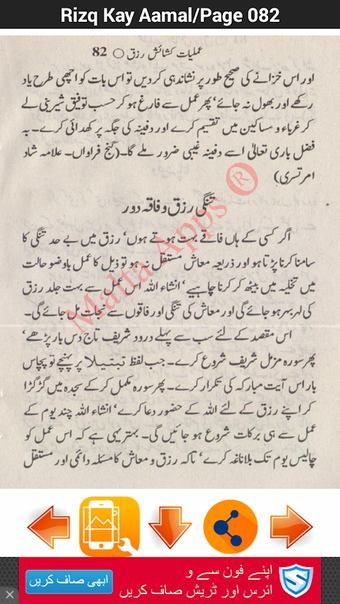 Rizq Kay Aamal/Page 082
عملیات کشائش رزق ○ 82
اور اس خزانے کی صحیح طور پر نشاندہی کر دیں تو اس بات کو اچھی طرح یاد
رکھے اور بھول نہ جائے' پھر عمل سے فارغ ہو کر حسب توفیق شیرینی لے
کر غرباء و مساکین میں تقسیم کرے اور دفینہ کی جگہ پر کھدائی کرے۔ بہ
فضل باری تعالیٰ اسے دفینہ غیبی ضرور ملے گا۔ (گنج فراواں۔ علامہ شاد
امرتسری)
تنگی رزق و فاقہ دور
اگر کسی کے ہاں فاقے بہت ہوتے ہوں' رزق میں بے حد تنگی کا
سامنا کرنا پڑتا ہو اور ذریعہ معاش مستقل نہ ہو تو ذیل کا عمل باوضو حالت
میں تخلیہ میں بیٹھ کر کرنا چاہیے' انشاء اللہ اس عمل سے بہت جلد رزق
کی لہر بہر ہو جائے گی اور معاش کی تنگی اور فاقوں سے نجات مل جائے گی۔
اس مقصد کے لئے سب سے پہلے درود شریف تاج دس بار پڑھے'
پھر سورہ مزمل شریف شروع کرے۔ جب لفظ تبتیلا پر پہنچے تو پچاس
بار اس آیت مبارکہ کی تکرار کرے۔ پھر سورہ مکمل کر کے سجدہ میں گڑگڑا
کر اپنے رزق کے لئے اللہ کے حضور دعا کرے' انشاء اللہ چند یوم کے
عمل سے ہی برکات شروع ہو جائیں گی۔ بہتر یہی ہے کہ اس عمل کو
چالیس یوم تک بلاناغہ کرے' تاکہ رزق و معاش کا مسئلہ دائمی اور مستقل
Maita Apps ®
اپنے فون سے و
ائرس اور ٹریش صاف کریں
ابھی صاف کریں